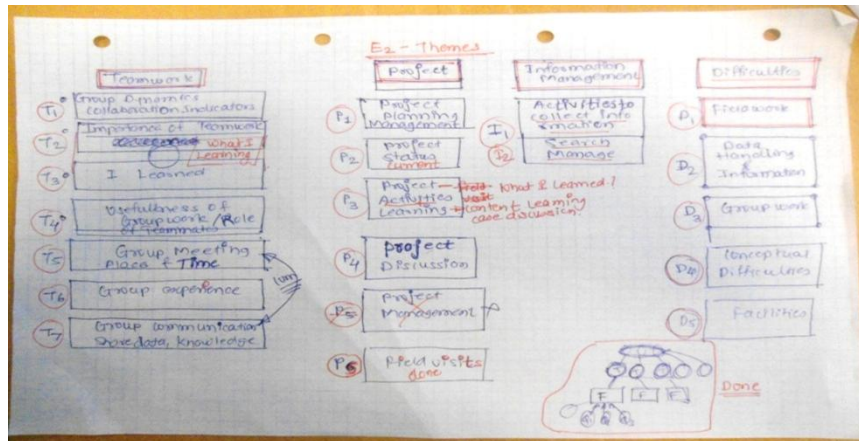 E2 - Themes
Teamwork
T1
Group Dynamics
Collaboration, Indicators
T2
Importance of Teamwork
What I
Learning
T3
I Learned
T4
Usefullness of
Groupwork / Role
of Teammates
T5
Group Meeting
Place & Time
T6
Group experience
T7
Group communication
Share data, Knowledge
Project
P1
Project
Planning
Management
P2
Project
Status
Current
P3
Project
Activities
Learning
What I Learned?
visit
content Learning
case discussion
P4
Project
Discussion
P5
Project
Management
P6
Field visits
done
Information
Management
I1
Activities to
collect Info
rmation
I2
Search
Manage
Difficulties
D1
Fieldwork
D2
Data
Handling
Information
D3
Group work
D4
Conceptual
Difficulties
D5
Facilities
F F F
Done